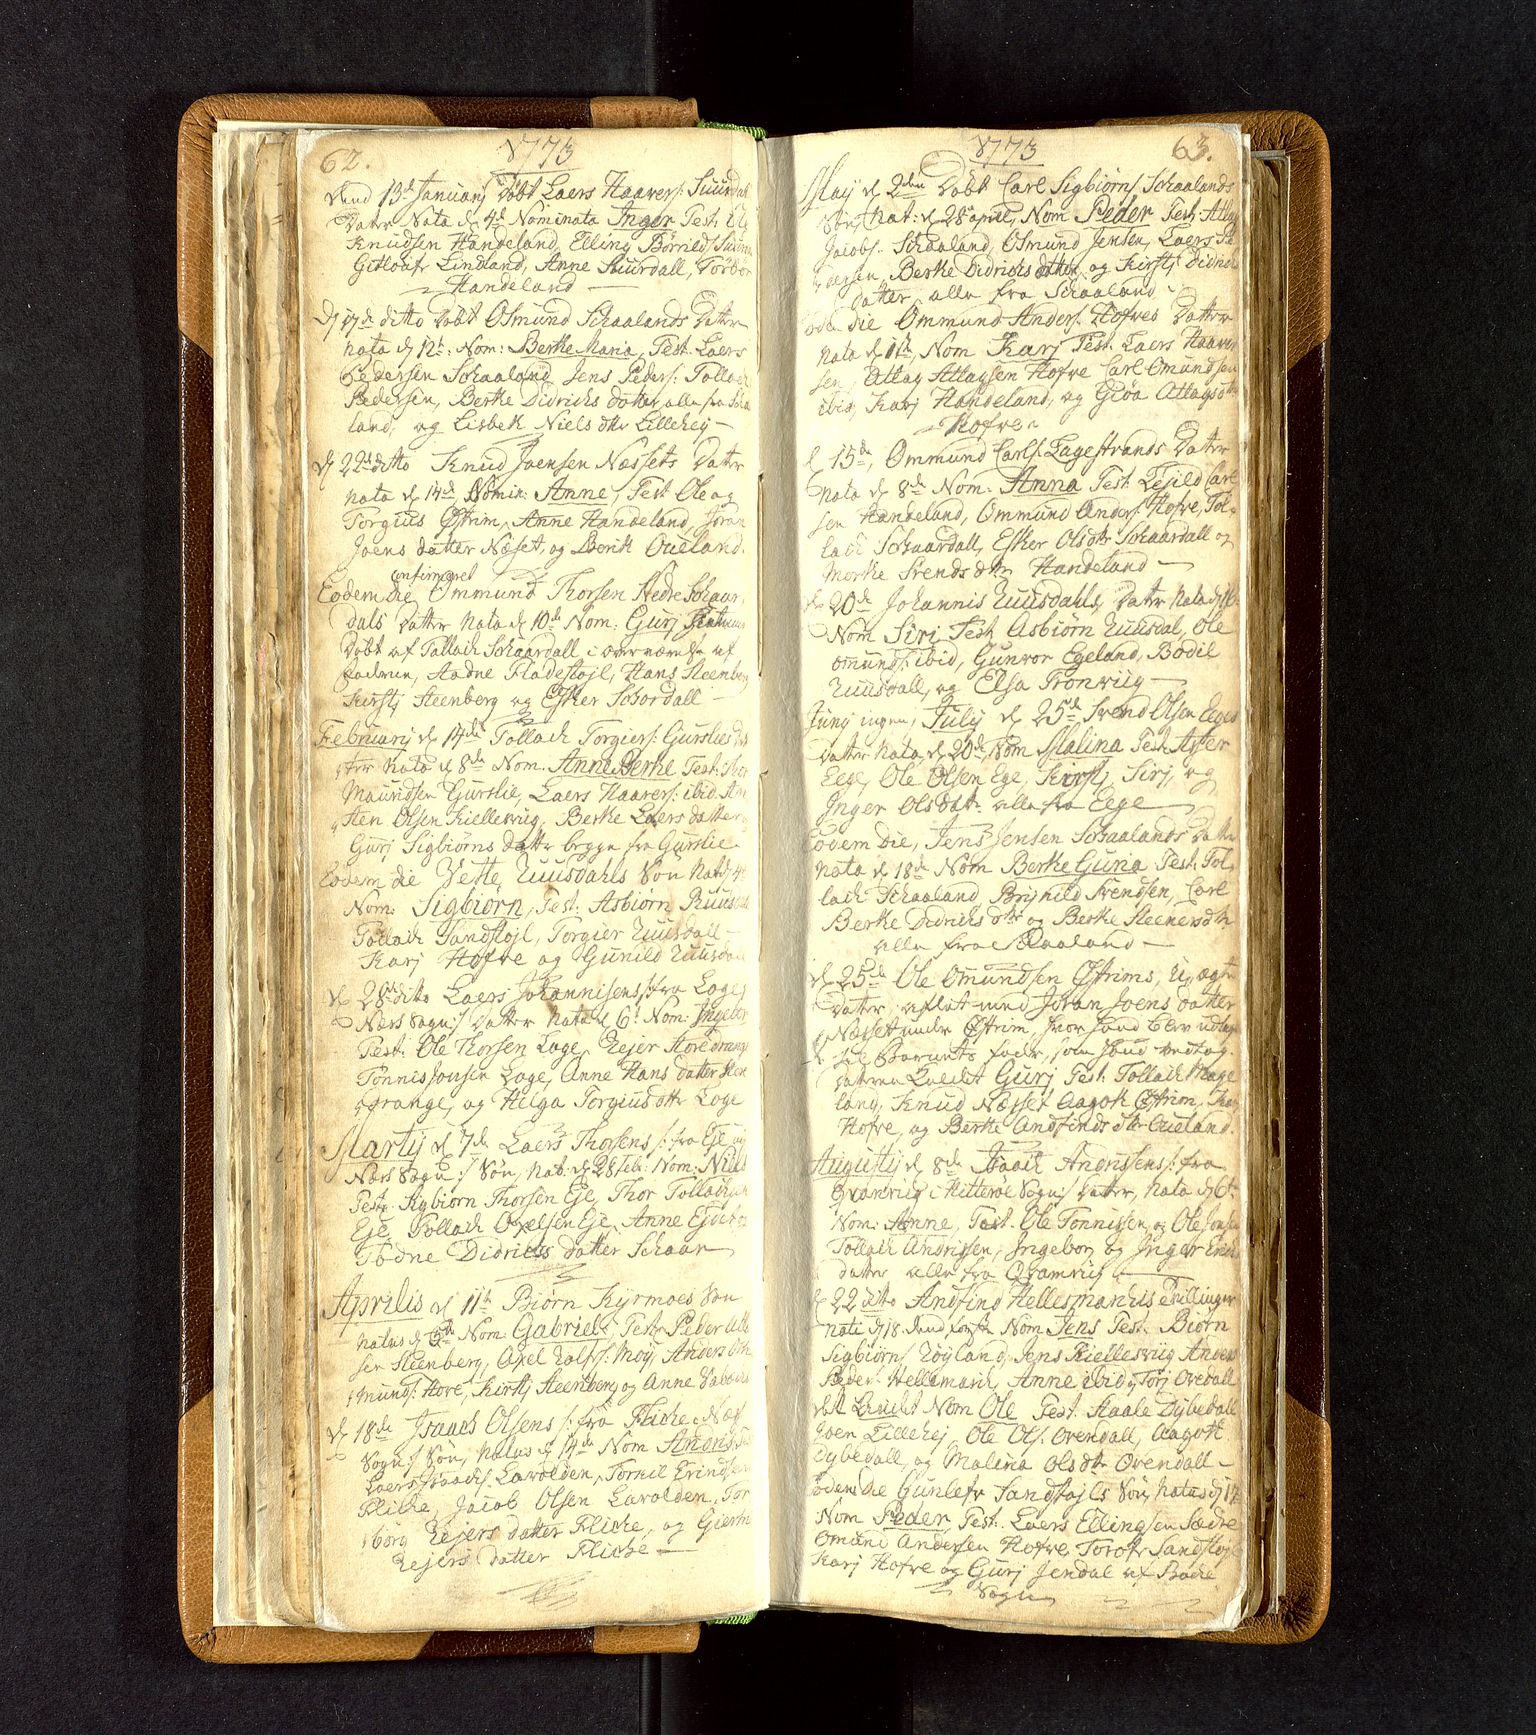 62.
1773
dend 13de Januarj döbt Laers Haavers: Suurdals
Datter Nata d 4de Nominata Inger Test: Ole
Knudsen Handeland, Elling Börrilds: Suurdal
Lindland, Anne Suurdall, Torbor
Handeland
d 17de ditto döbt Osmund Schaalands Datter
nata d 12t: Nom: Berthe Maria, Test. Laers
Pedersen Schaaland Jens Peders: Tollach
Pedersen, Berthe Didrichs datter alle fra Schaa
land, og Lisbeth Niels dttr Lillehej
d 22de ditto Knud Joensen Næssets Datter
nata d 14de Nomin: Anne, Test Ole og
Torgius Østrim, Anne Handeland, Joran
Joens datter Næset, og Berit Oueland.
confirmeret
Eodem die Ommund Thorsen Nedre Schaar
dals Datter Nata d 10de Nom: Gurj
Döbt af Tollach Schaardall i overværelse af
Faderen, Aadne Fladestøjl, Hans Steenberg
Kirstj Steenberg og Esther Schordall
Februarj d 14de Tollach Torgiers: Gurslies dat
ter nata d 8de Nom. Anne Berthe Test: Thor
Mauridsen Gurslie, Laers Haavers: ibid. Am
sten Olsen Kiellesviig, Berthe Laers datter
Gurj Sigbiörns datter begge fra Gurslie
Eodem die Vette Ruusdahls Sön Nat. d 4t
Nom: Sigbiörn, Test: Asbiörn Ruusdal
Tollach Sandstøjl, Torgier Ruusdall
Karj Hofve og Gunild Ruusdal
d 28de ditto Laers Johannisens /: fra Loge j
Næss Sogn :/ Datter nata d 6t Nom: Ingebor
Test: Ole Thorsen Loge, Rejer Storedrange
Tönnis Jonsen Loge, Anne Hans datter Store
drange, og Helga Torgius dttr Loge
Martij d 7de Laers Thorsens /: fra Eje i
Næss Sogn :/ Sön, Nat: d 28 Feb: Nom: Niels
Test: Sigbiörn Thorsen Eje, Thor Tollachsen
Eje, Tollach Oxelsen Eje, Anne Eje
Todne Didrichs datter Schaar
Aprilis d 11te Biörn Kyrmoes Sön
natus d 6te Nom. Gabriel, Test: Peder
sen Steenberg, Oxel Rolfs: Moij Anders
munds: Hove, Kirstj Steenberg og Anne
d 18de Isaach Olsens /: fra Fliche i Næss
Sogn :/ Sön, natus d 14de Nom Andris Test
Laers Isaachs: Lavolden, Torkil Erindsen
Fliche, Jacob Olsen Lavolden, Tor
borg Rejers datter Fliche, og Giertru
Rejers datter Fliche
63.
1773
Maij d 2den Döbt Carl Sigbiörns Schaalands
Sön, Nat: d 28 april, Nom Peder Test: Attlag
Jacobs: Schaaland, Osmund Jensen, Laers Pe
dersen, Berthe Didrichs datter og Kirstj Didrichs
datter, alle fra Schaaland
Eodem die Ommund Anders: Hofves Datter
nata d 16t, Nom Karj Test: Laers Haaver
sen, Attlag Attlagsen Hofve Carl Omundsen
ibid, Karj Handeland, og Giöa Attlags dttr
Hofve
d 15de, Ommund Carls: Lagestrands Datter
Nata d 8de Nom: Anna Test: Lejild Carl
sen Handeland, Ommund Anders: Hofve, Tol
lach Schaardall, Esther Ols dttr Schaardall og
Marthe Svends dttr Handeland
d 20de Johannis Ruusdahls, Datter nata d 16t
Nom Siri Test Asbiörn Ruusdal, Ole
Omunds: ibid, Gunvor Egeland, Bodil
Ruusdall, og Elsa Tronviig
Junij ingen, Julij d 25de Svend Olsen Eeges
Datter Nata, d 20de, Nom Malina Test: Asser
Eege, Ole Olsen Ege, Kirstj, Sirj, og
Inger Ols datt: alle fra Eege
Eodem die, Jens Jensen Schaalands Datter
Nata d 18de Nom Berthe Guna Test: Tol
lach Schaaland, Brynild Svendsen, Carl
Berthe Didrichs dttr og Berthe Steeners dttr
alle fra Skaaland
d 25de Ole Omundsen Østrims, U, ægte
Datter, aflet med Joran Joens datter
Næsset under Østrim, hvor hand blev udlagt
til Barnets fader, som hand vedtog.
Datteren kaldet Gurj Test Tollach Hage
lang, Knud Næsset Aagot Østrim, Karj
Hofve, og Berthe Andfinds dtr Oueland.
Augustij d 8de Isaach Andrissens /: fra
Qvanviig i Hitteröe Sogn :/ Datter, Nata d 6t.
Nom: Anne, Test. Ole Tonnissen, og Ole Jonsen
Tollach Andrissen, Ingebor og Inger Erichs
datter alle fra Qvamviig
d 22 ditto Andfind Hellesmarchs Tvillinger
nati d 18. dend förste Nom Jens Test: Biörn
Sigbiörns Röyland, Jens Kiellesviig Anders
Peders: Hellesmarch, Anne ibid, Torj Ovedall
det andet Nom Ole Test: Staale Dybedall
Joen Lillehej, Ole Ols. Ovendall, Aagott
Dybedall, og Malina Ols dtr Ovendall
Eodem Die Gunlefr Sandstøjls Sön, natus d 17
Nom Peder Test: Laers Ellingsen Sædre
Omund Andersen Hofve, Torofr Sandstøjl
Karj Hofve og Gurj Jendal af Backe
Sogn